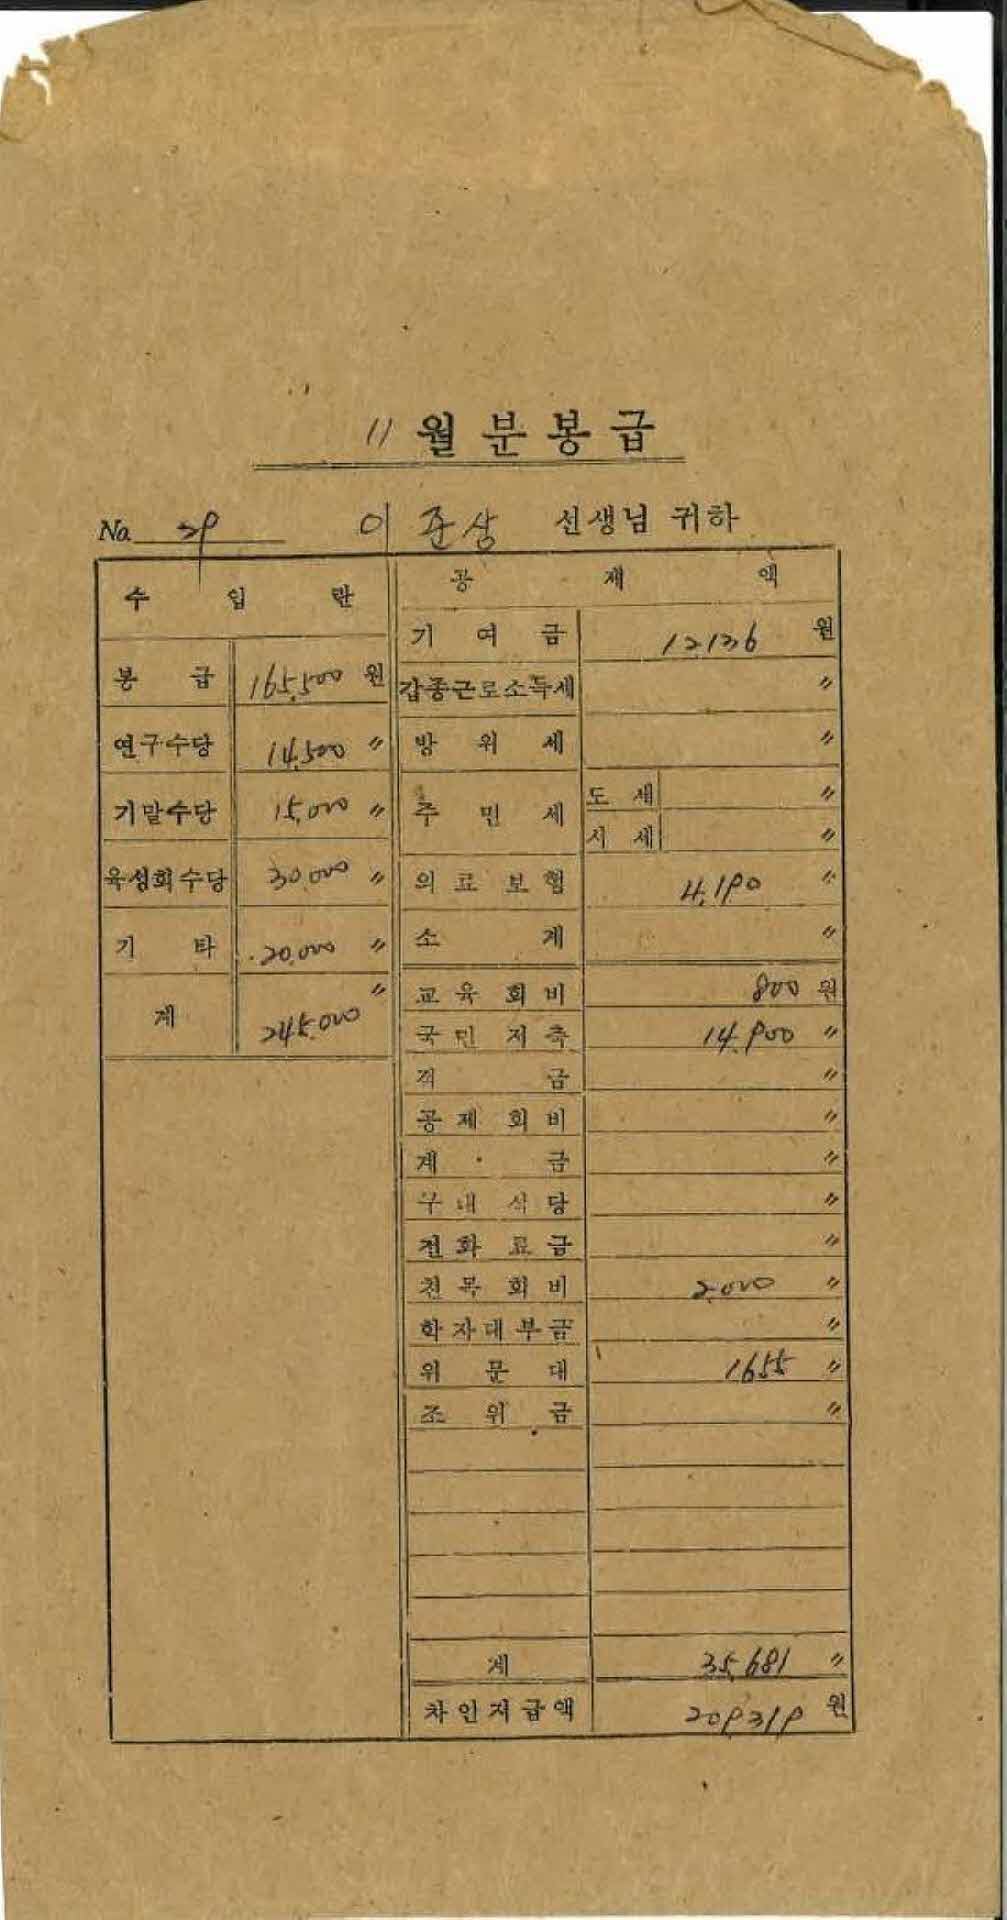 11 월분봉급
No. 29 이준상 선생님 귀하
수입란
봉급 165,500 원
연구수당 14,500 〃
기말수당 15,000 〃
육성회수당 30,000 〃
기타 20,000 〃
계 245,000 〃
공제액
기여금 12,136 원
갑종근로소득세 〃
방위세 〃
주민세 도세 〃
시세 〃
의료보험 4,190 〃
소계 〃
교육회비 800 원
국민저축 14,900 〃
적금 〃
공제회비 〃
계금 〃
구내식당 〃
전화료금 〃
친목회비 2,000 〃
학자대부금 〃
위문대 1655 〃
조위금 〃
계 35,681 〃
차인지급액 209319 원